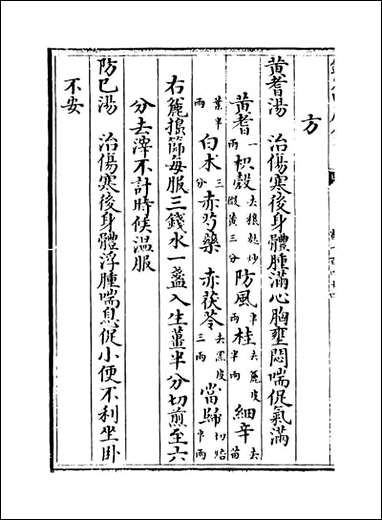 方
黄耆湯　治傷寒後身體腫滿心胸壅悶喘促氣滿
黄耆一兩　枳殻去穰麩炒微黄三分　防風半兩　桂去麤皮半兩　細辛去苗
葉半兩　白术三分　赤芍藥　赤茯苓去黑皮三兩　當歸切焙半兩
右麤擣篩每服三錢水一盞入生薑半分切煎至六
分去滓不計時候温服
防巳湯　治傷寒後身體浮腫喘息促小便不利坐卧
不安